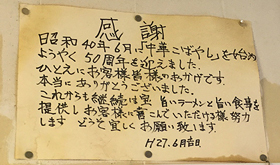 感謝
昭和40年6月「中華こばやし」を始め
ようやく50周年を迎えました。
ひとえにお客様皆様のおかげです。
本当にありがとうございました。
これからも継続は宝 旨いラーメンと旨い食事を
提供しお客様に喜こんでいただける様努力
します どうぞ宜しくお願い致します。
H27.6月吉日